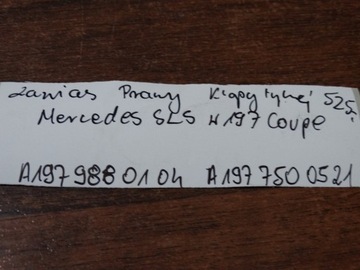 Zawias Prawy Klapy tylnej 525,-
Mercedes SLS W197 Coupe
A197 988 01 04 A197 750 05 21